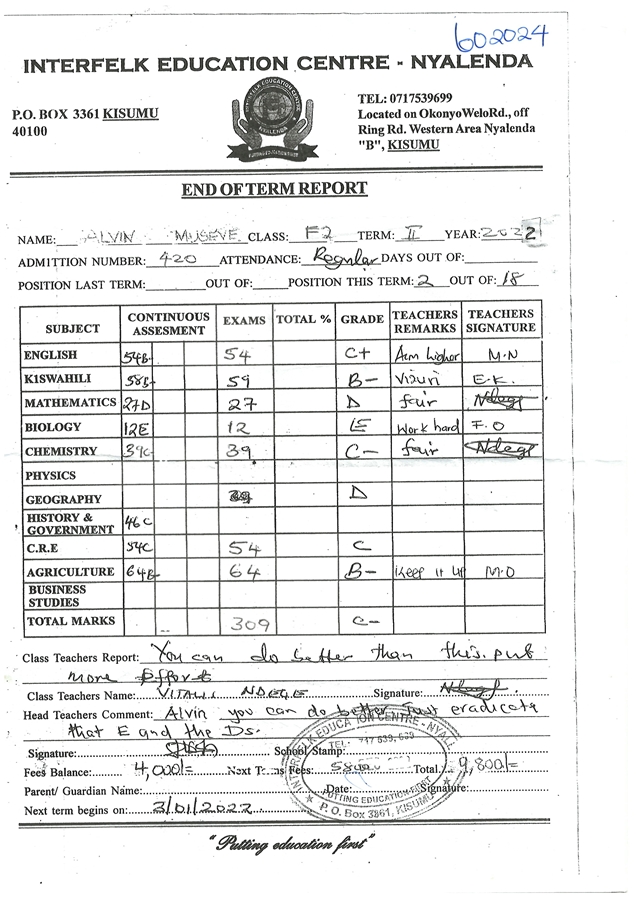 602024
INTERFELK EDUCATION CENTRE - NYALENDA
P.O. BOX 3361 KISUMU
40100
INTERFELK EDUCATION CENTRE
NYALENDA
TEL: 0717539699
Located on OkonyoWeloRd., off
Ring Rd. Western Area Nyalenda
"B", KISUMU
END OF TERM REPORT
NAME: ALVIN MUSEVE CLASS: F2 TERM: II YEAR: 2022
ADMITTION NUMBER: 420 ATTENDANCE: Regular DAYS OUT OF:
POSITION LAST TERM: OUT OF: POSITION THIS TERM: 2 OUT OF: 18
SUBJECT CONTINUOUS ASSESMENT EXAMS TOTAL % GRADE TEACHERS REMARKS TEACHERS SIGNATURE
ENGLISH 54B- 54 C+ Aim higher M.N
K1SWAHILI 58B- 59 B- Vizuri E.K.
MATHEMATICS 27D 27 D fair Ndege
BIOLOGY 12E 12 E Work hard F.O
CHEMISTRY 39C 39 C- fair Ndege
PHYSICS
GEOGRAPHY D
HISTORY & GOVERNMENT 46C
C.R.E 54C 54 C
AGRICULTURE 64B- 64 B- Keep it up M.O
BUSINESS STUDIES
TOTAL MARKS 309 C-
Class Teachers Report: You can do better than this. put
more Effort
Class Teachers Name: VITALI NDEGE Signature: Ndege
Head Teachers Comment: Alvin you can do better just eradicate
that E and the Ds.
Signature: School Stamp:
Fees Balance: 4,000/= Next Terms Fees: 5800 Total: 9,800/=
Parent/ Guardian Name: Date: Signature:
Next term begins on: 3/01/2022
INTERFELK EDUCATION CENTRE - NYALE
TEL:
PUTTING EDUCATION FIRST
P.O. Box 3361, KISUMU
"Putting education first"